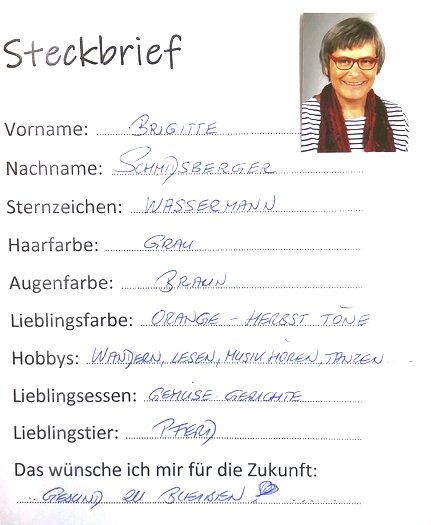 Steckbrief
Vorname: BRIGITTE
Nachname: SCHMIDSBERGER
Sternzeichen: WASSERMANN
Haarfarbe: GRAU
Augenfarbe: BRAUN
Lieblingsfarbe: ORANGE - HERBST TÖNE
Hobbys: WANDERN, LESEN, MUSIK HÖREN, TANZEN
Lieblingsessen: GEMÜSE GERICHTE
Lieblingstier: PFERD
Das wünsche ich mir für die Zukunft:
GESUND ZU BLEIBEN